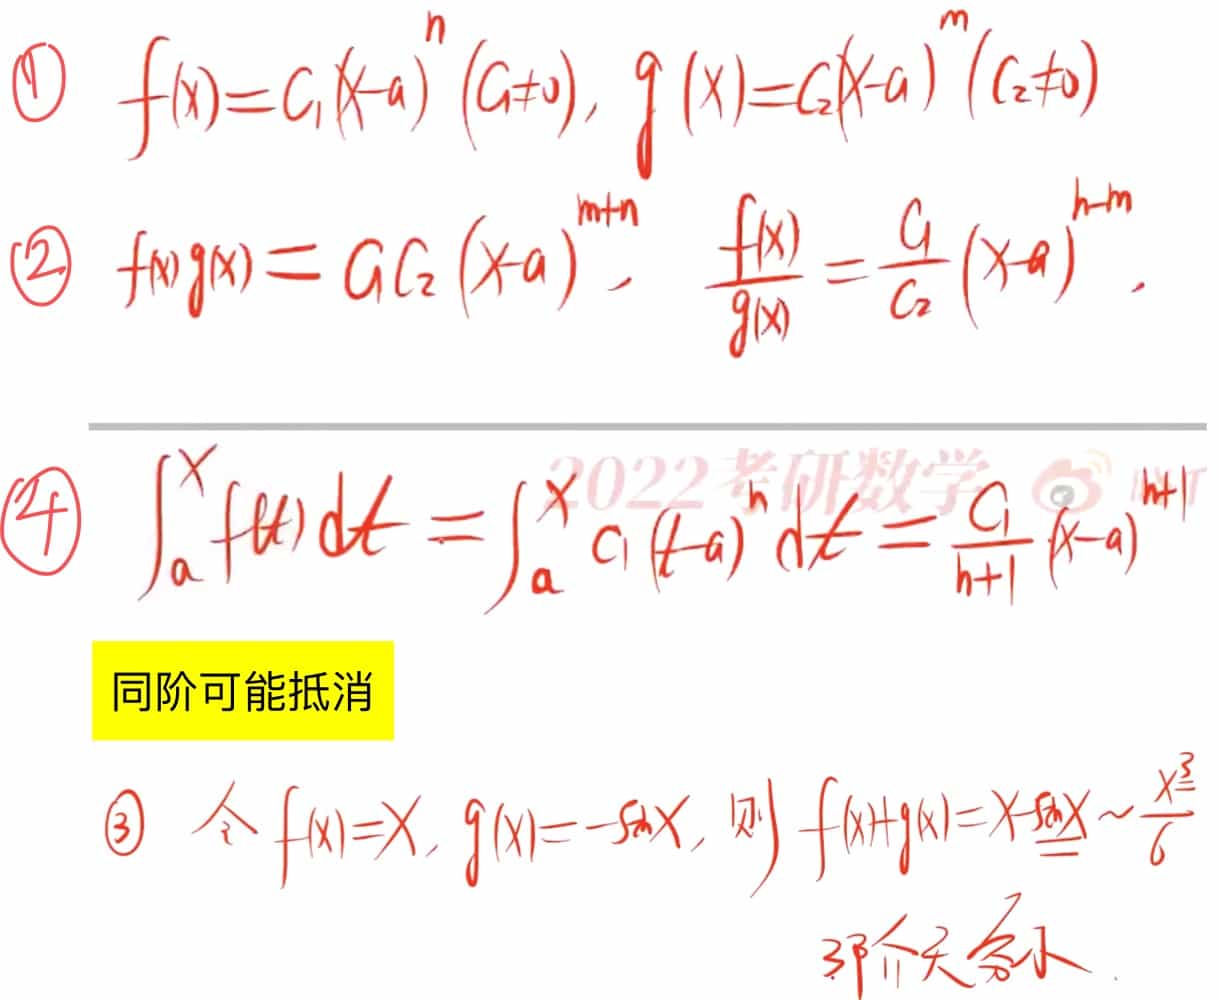 ① f(x)=C₁(x-a)ⁿ (C₁≠0), g(x)=C₂(x-a)ᵐ (C₂≠0)
② f(x)g(x)=C₁C₂(x-a)ᵐ⁺ⁿ, f(x)/g(x)=C₁/C₂(x-a)ⁿ⁻ᵐ.
2022考研数学
④ ∫ₐˣf(t)dt=∫ₐˣC₁(t-a)ⁿdt=C₁/(n+1)(x-a)ⁿ⁺¹
同阶可能抵消
③ 令f(x)=x, g(x)=-sinx, 则f(x)+g(x)=x-sinx~x³/6
3阶无穷小.